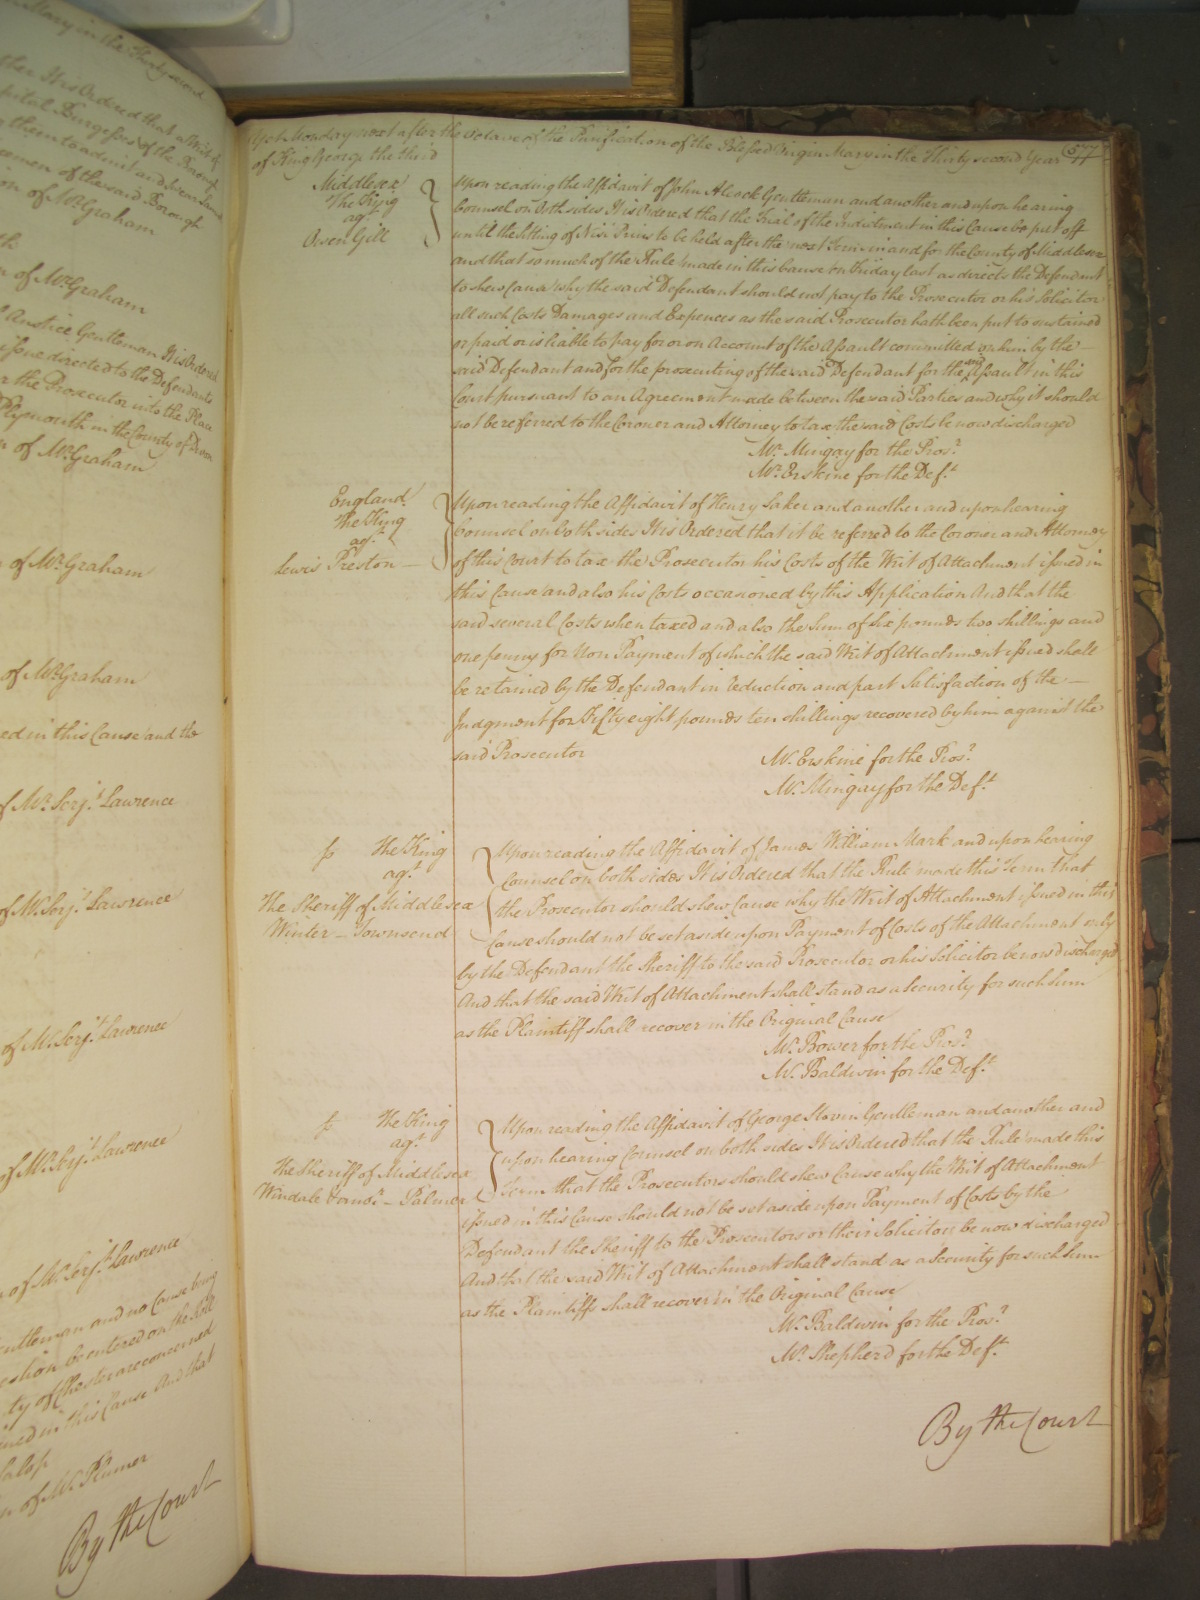 Mary in the Thirty second
It is Ordered that a Writ of
Capital Burgesses of the Borough
them to admit and swear
of the said Borough
of Mr. Graham
of Mr. Graham
Anstice Gentleman It is Ordered
issue directed to the Defendants
the Prosecutor into the Place
Plymouth in the County of Devon
of Mr. Graham
of Mr. Graham
of Mr. Graham
ed in this Cause and the
of Mr. Serjt. Lawrence
of Mr. Serjt. Lawrence
of Mr. Serjt. Lawrence
of Mr. Serjt. Lawrence
of Mr. Serjt. Lawrence
Gentleman and no Cause being
be entered on the Roll
of Chester are concerned
in this Cause And that
Salop
of Mr. Plumer
By the Court
Yet Monday next after the Octave of the Purification of the Blessed Virgin Mary in the Thirty second Year 577
of King George the third
Middlesex
The King
agt.
Owen Gill
Upon reading the Affidavit of John Alcock Gentleman and another and upon hearing
Counsel on both sides It is Ordered that the Trial of the Indictment in this Cause be put off
until the Sitting of Nisi Prius to be held after the next Term in and for the County of Middlesex
and that so much of the Rule made in this Cause on Friday last as directs the Defendant
to shew Cause why the said Defendant should not pay to the Prosecutor or his Solicitor
all such Costs Damages and Expences as the said Prosecutor hath been put to sustained
or paid or is liable to pay for or on Account of the Assault committed on him by the
said Defendant and for the prosecuting of the said Defendant for the said Assault in this
Court pursuant to an Agreement made between the said Parties and why it should
not be referred to the Coroner and Attorney to tax the said Costs be now discharged
Mr. Mingay for the Pros.r
Mr. Erskine for the Def.t
England
The King
agt.
Lewis Preston
Upon reading the Affidavit of Henry Laker and another and upon hearing
Counsel on both sides It is Ordered that it be referred to the Coroner and Attorney
of this Court to tax the Prosecutor his Costs of the Writ of Attachment issued in
this Cause and also his Costs occasioned by this Application And that the
said several Costs when taxed and also the Sum of six pounds two shillings and
one penny for Non Payment of which the said Writ of Attachment issued shall
be retained by the Defendant in reduction and part Satisfaction of the
Judgment for Fifty eight pounds ten shillings recovered by him against the
said Prosecutor
Mr. Erskine for the Pros.r
Mr. Mingay for the Def.t
The King
agt.
The Sheriff of Middlesex
Winter – Townsend
Upon reading the Affidavit of James William Mark and upon hearing
Counsel on both sides It is Ordered that the Rule made this Term that
the Prosecutor should shew Cause why the Writ of Attachment issued in this
Cause should not be set aside upon Payment of Costs of the Attachment only
by the Defendant the Sheriff to the said Prosecutor or his Solicitor be now discharged
And that the said Writ of Attachment shall stand as a Security for such Sum
as the Plaintiff shall recover in the Original Cause
Mr. Bower for the Pros.r
Mr. Baldwin for the Def.t
The King
agt.
The Sheriff of Middlesex
Windale & anor. – Palmer
Upon reading the Affidavit of George Slovin Gentleman and another and
upon hearing Counsel on both sides It is Ordered that the Rule made this
Term that the Prosecutors should shew Cause why the Writ of Attachment
issued in this Cause should not be set aside upon Payment of Costs by the
Defendant the Sheriff to the Prosecutors or their Solicitor be now discharged
And that the said Writ of Attachment shall stand as a Security for such Sum
as the Plaintiffs shall recover in the Original Cause
Mr. Baldwin for the Pros.r
Mr. Shepherd for the Def.t
By the Court